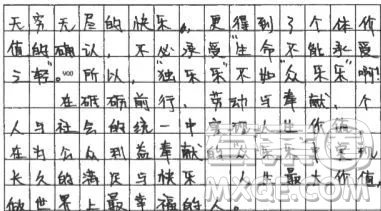 无穷无尽的快乐。更得到了个体价
值的确认，不必承受"生命不能承受
之轻"。所以，"独乐乐"不如"众乐乐"啊！
在砥砺前行，劳动与奉献，个
人与社会的统一中实现人生价值，
在为公众利益奉献的人
长久的满足与快乐，人生最大价值，
做世界上最幸福的人。